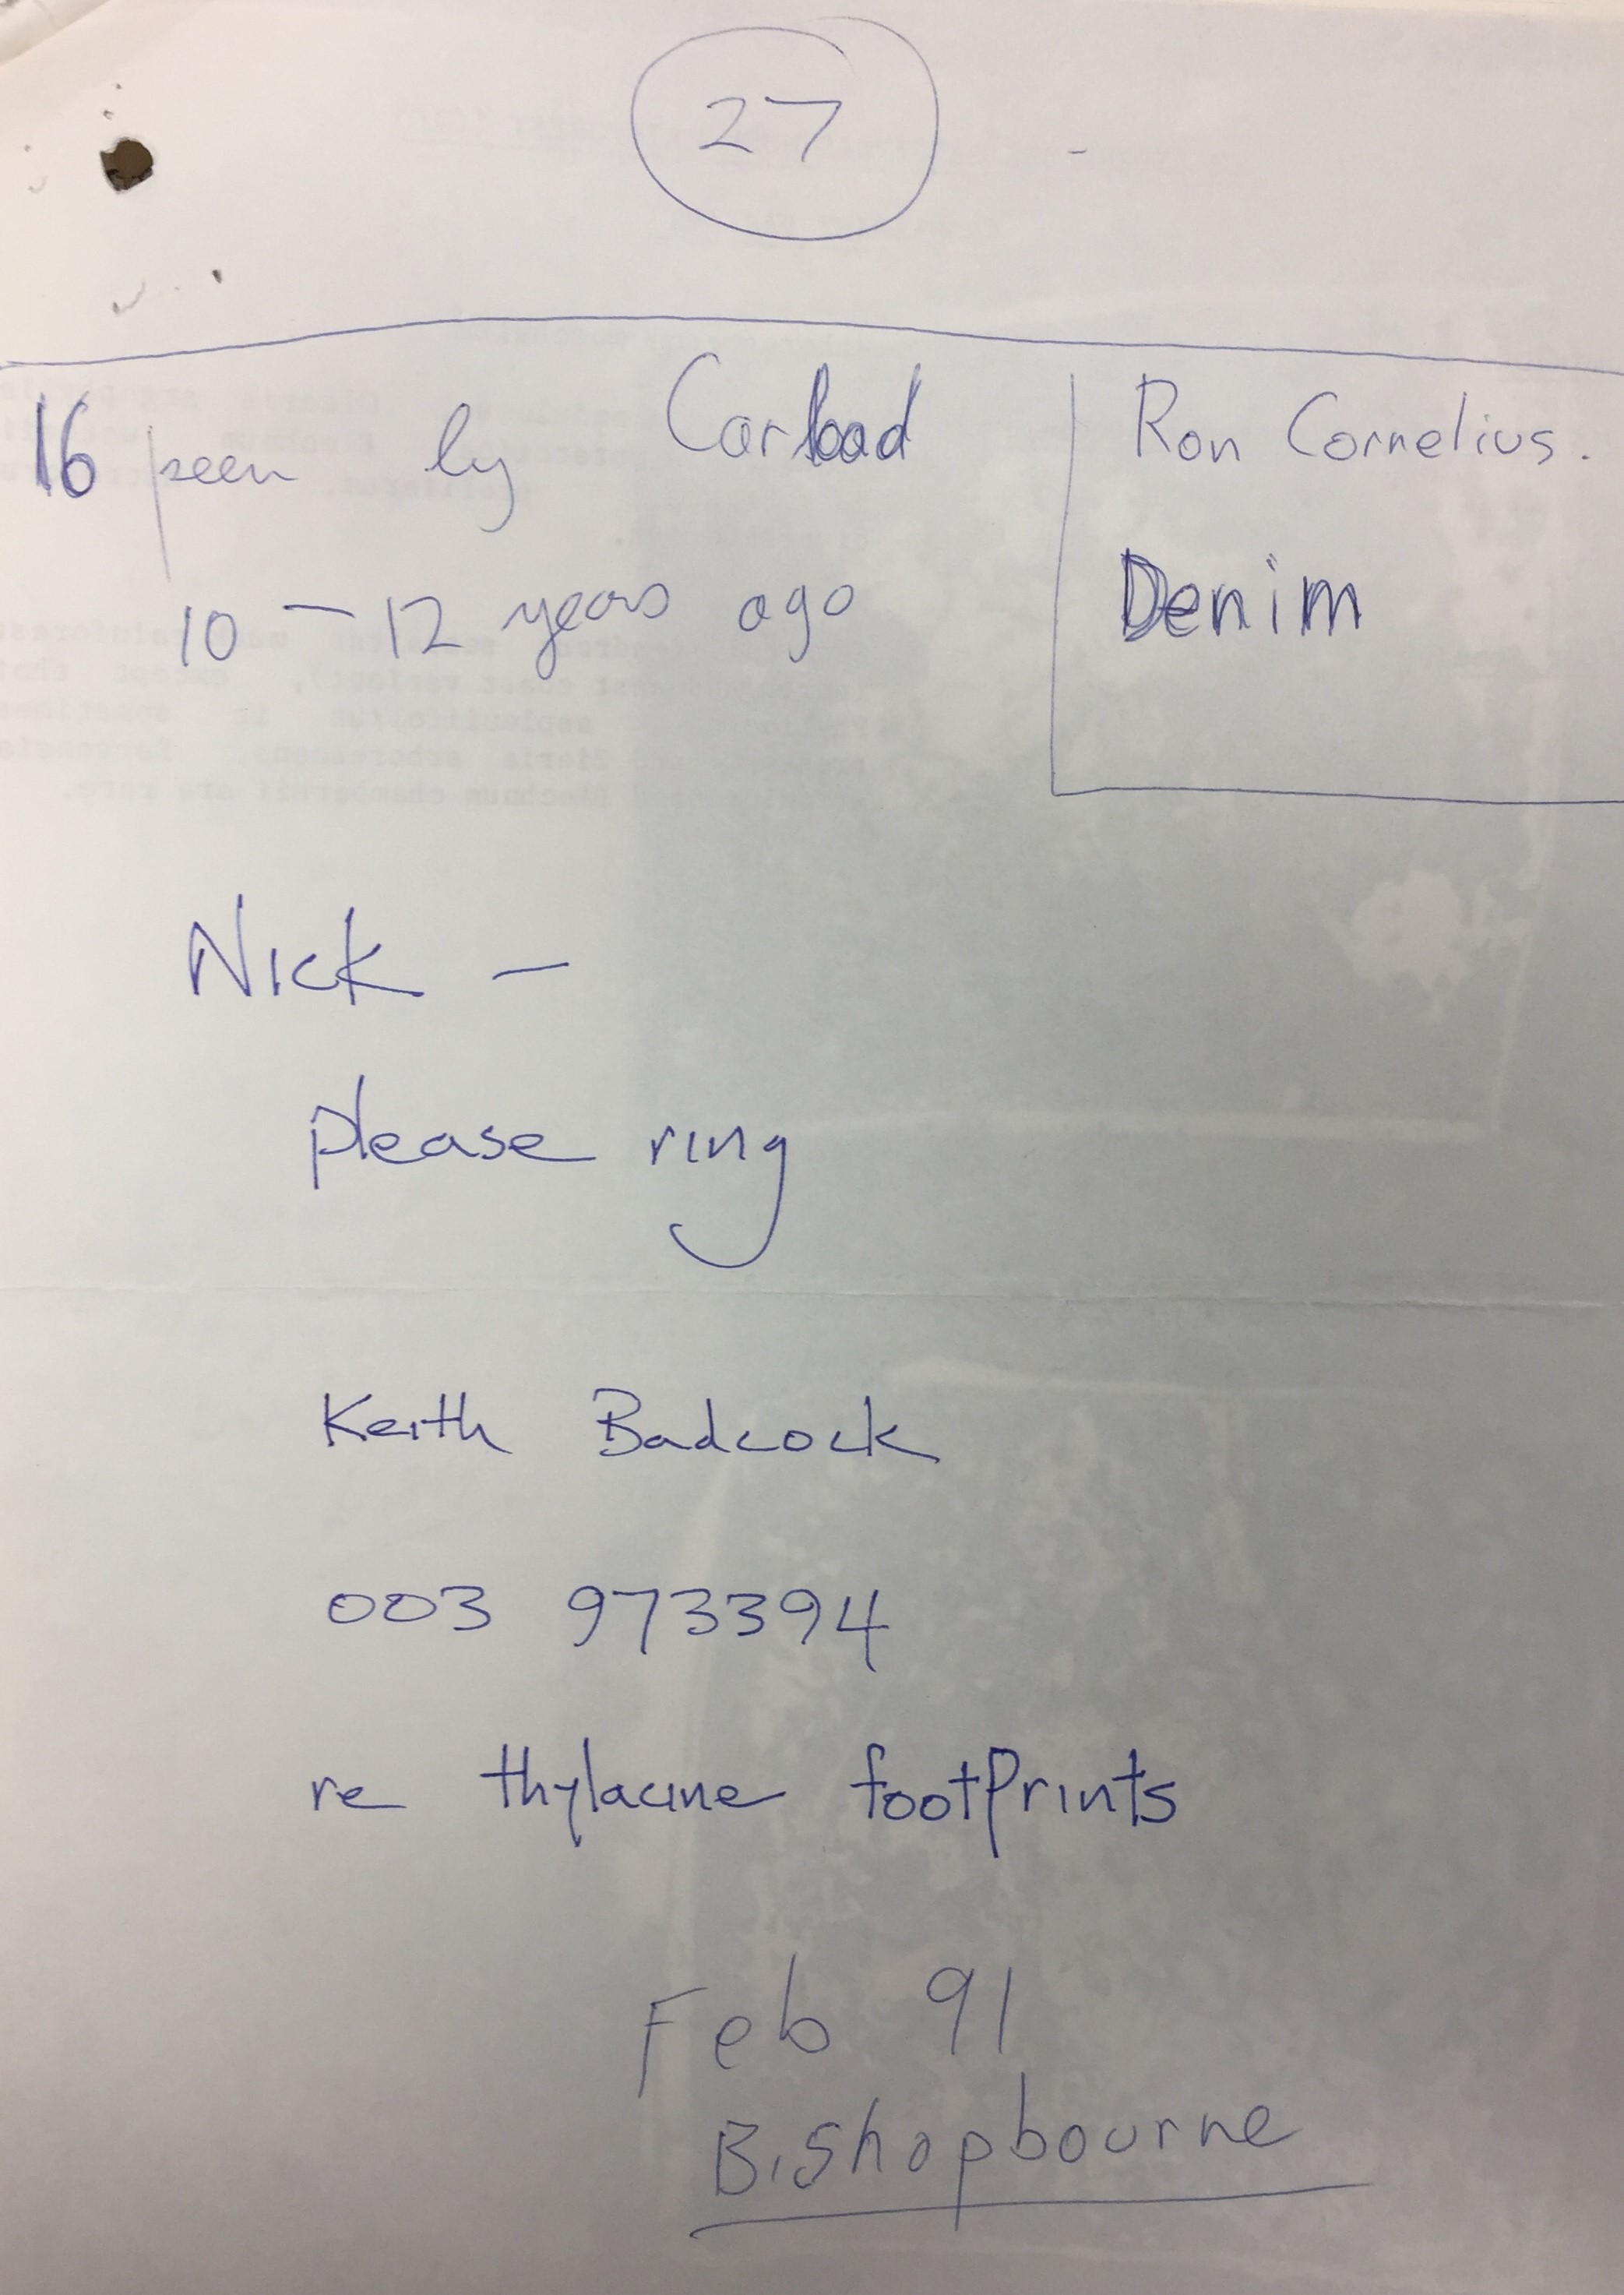 27
16 seen by Carload
10 - 12 years ago
Ron Cornelius.
Denim
Nick -
please ring
Keith Badcock
003 973394
re thylacine footprints
Feb 91
Bishopbourne